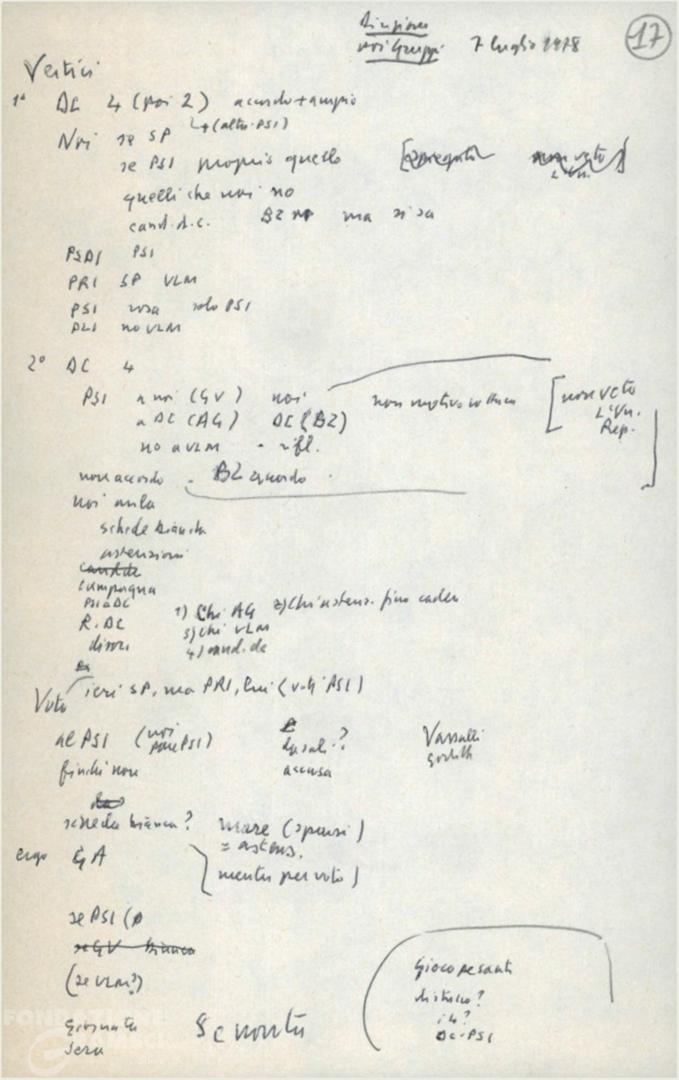 Riunione
noi Gruppi 7 luglio 1978 17
Vertici
1° DC 4 (poi 2) accordo + ampio
(altri PSI)
Noi se SP
se PSI proprio quello
quelli che noi no
cand. d.c. BZ no ma si sa
PSDI PSI
PRI SP VLM
PSI rosa solo PSI
PLI no VLM
2° DC 4
PSI a noi (GV) noi non motivo [non veto
a DC (AG) DC (BZ) L'Un.
no a VLM - rifl. Rep.
non accordo - BZ accordo
noi aula
schede bianche
astensioni
campagna
PSI a DC
R. DC 1) Chi AG 2) Chi astens. fino
divisi 3) chi VLM
4) cand. dc
Voto ieri SP, ma PRI, lui (voti PSI)
al PSI (noi pare PSI) quali? Vassalli
finché non accusa
scheda bianca? mare (spersi)
= astens.
ergo GA mentre per voto)
se PSI (
se GV bianca
(se VLM?)
Gioco pesante
DC-PSI
giornata
sera
FONDAZIONE
GRAMSCI